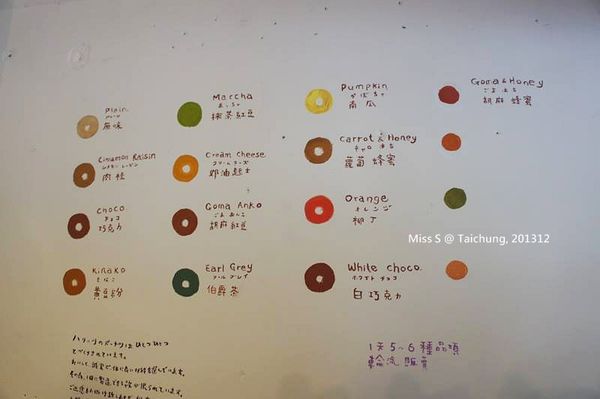 Plain.
プレーン
原味
Marcha
まっちゃ
抹茶紅豆
Pumpkin
かぼちゃ
南瓜
Goma & Honey
ごま はち
胡麻 蜂蜜
Cinamon Raisin
シナモン レーズン
肉桂
Cream Cheese.
クリームチーズ
奶油起士
Carrot & Honey
キャロ はち
蘿蔔 蜂蜜
Choco.
チョコ
巧克力
Goma Anko
ごま あんこ
胡麻紅豆
Orange
オレンジ
柳丁
Miss S @ Taichung, 201312
Kinako
きなこ
黄豆粉
Earl Grey
アールグレイ
伯爵茶
White choco.
ホワイト チョコ
白巧克力
ハリーツのドーナツはひとつひとつ
1天5~6種品項
輪流販賣